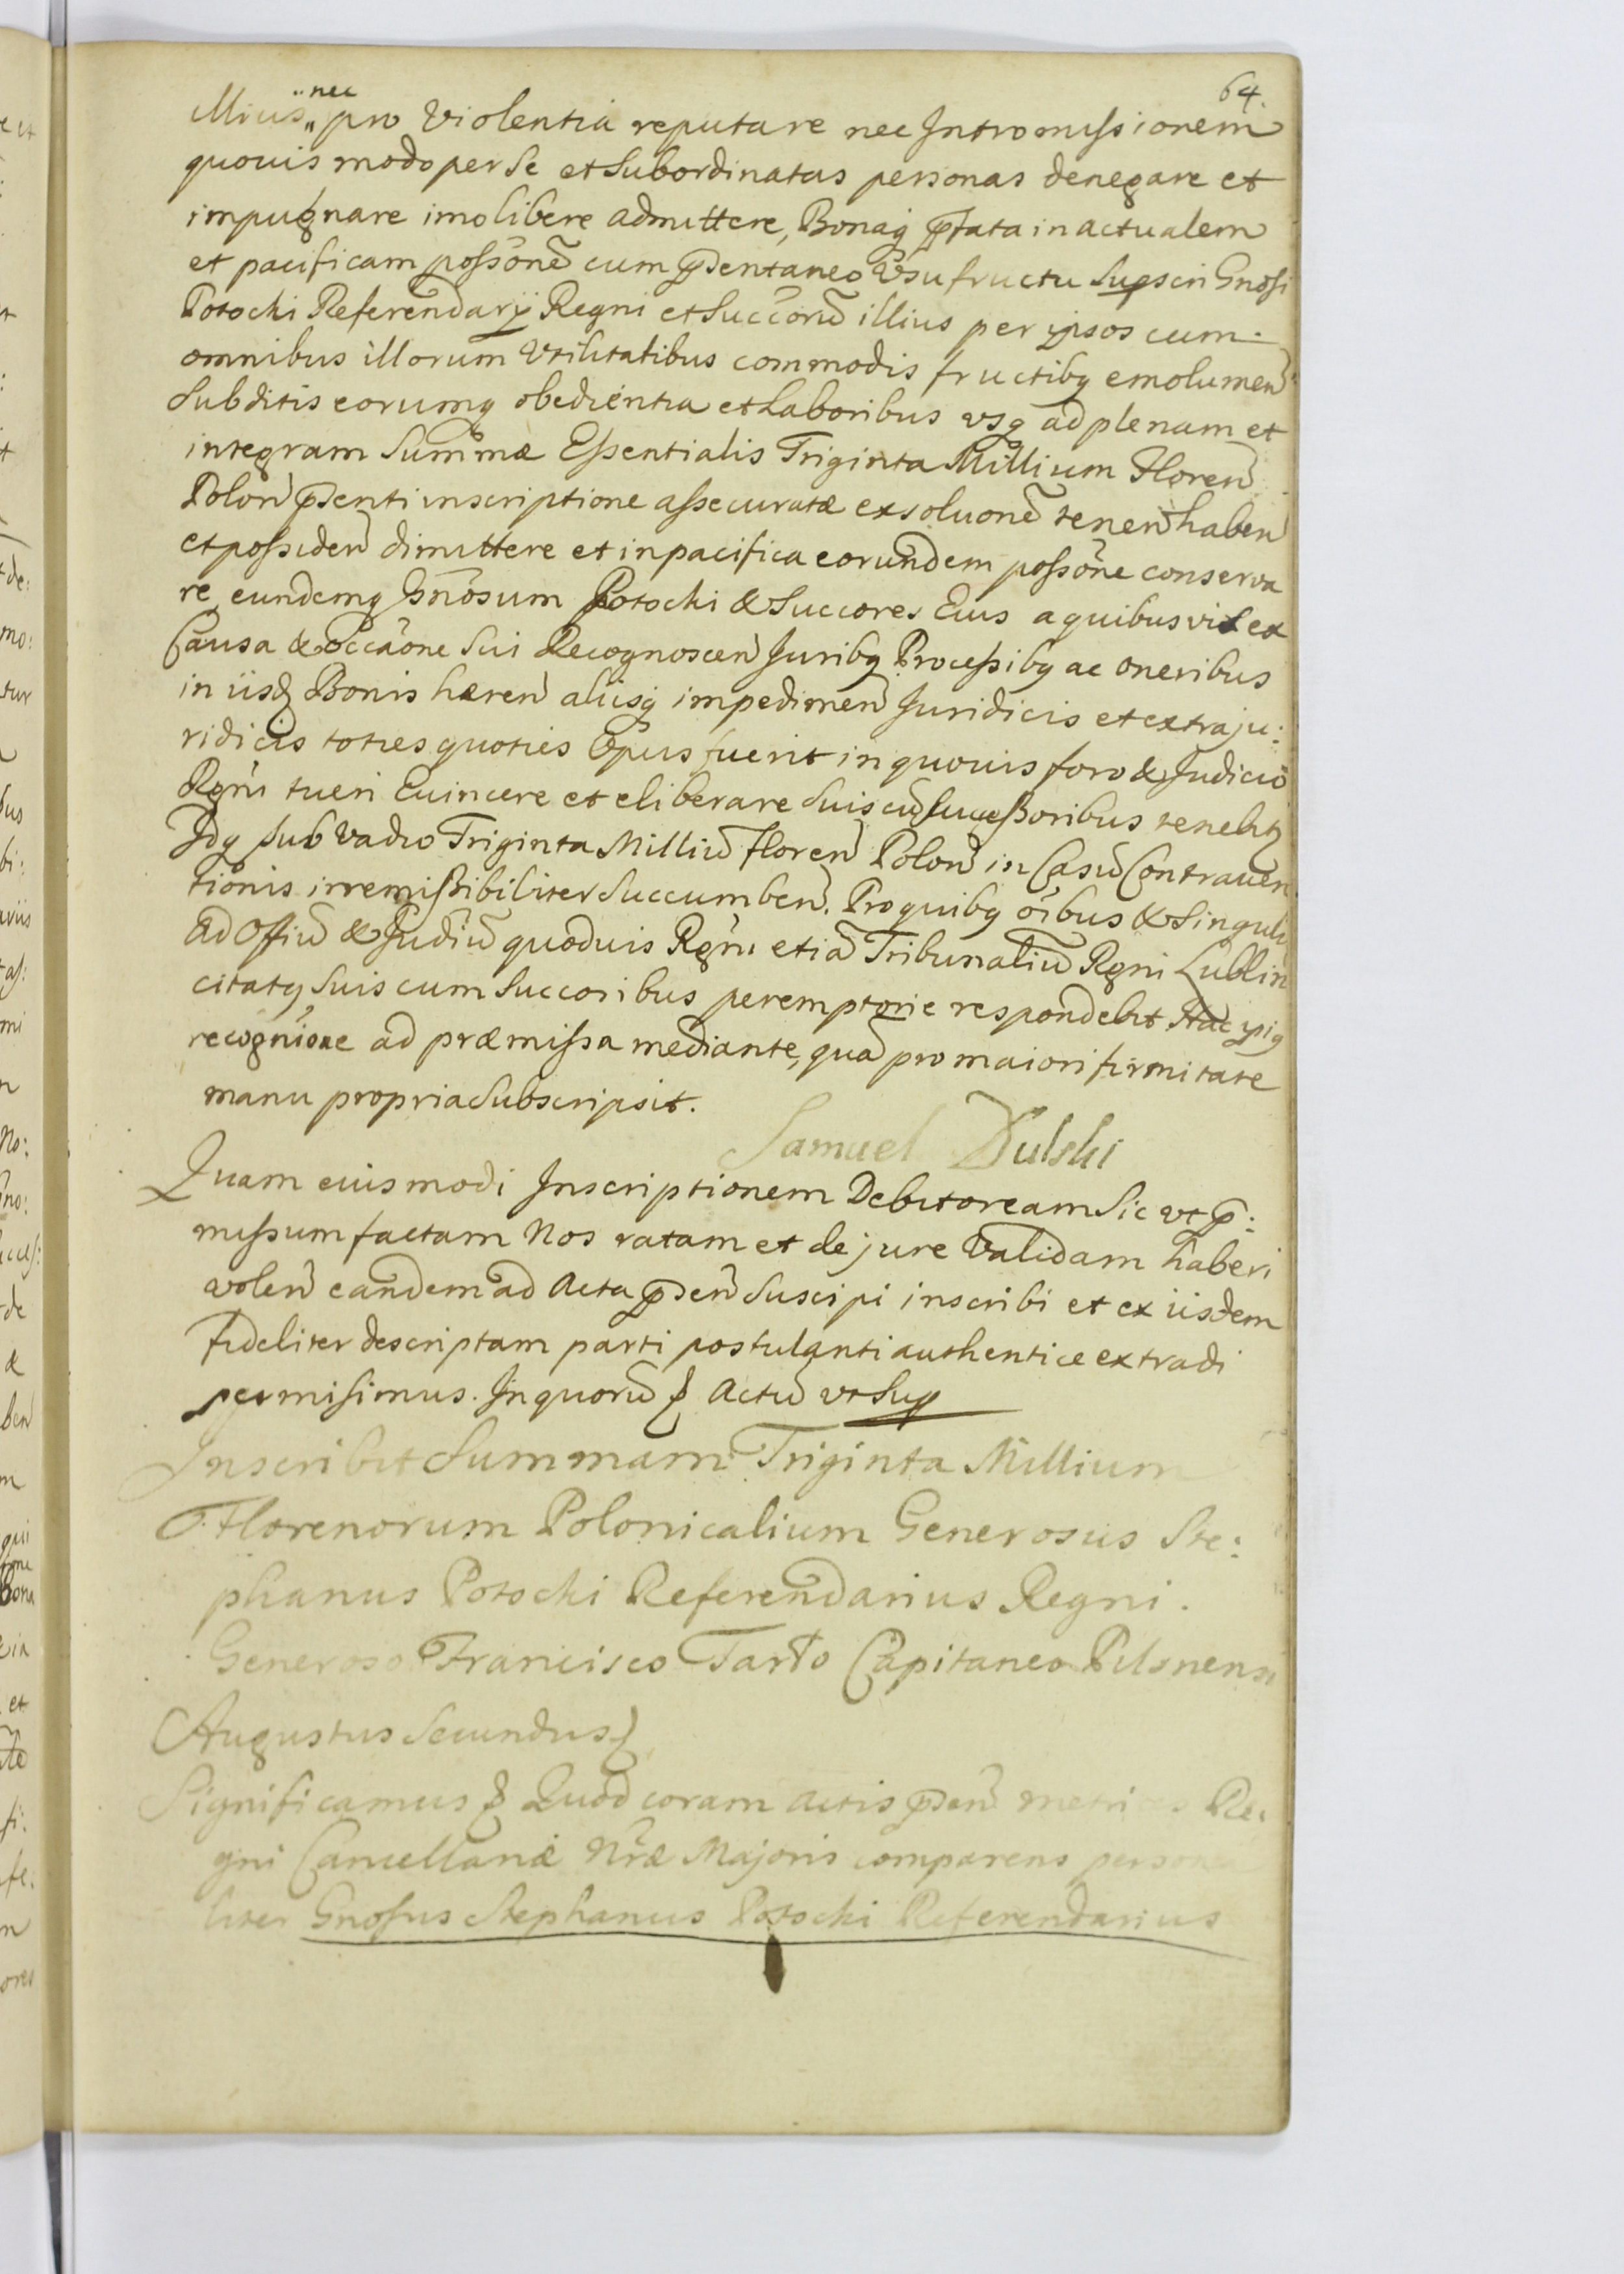 64.
illius nec pro Violentia reputare nec Intromissionem
quovis modo per se et Subordinatas personas denegare et
impugnare imo libere admittere, Bonaq̃ p̃fata in actualem
et pacificam possõnẽ cum p̃sentaneo Vsufructu supscri Gnosi
Potocki Referendarÿ Regni et Succorũ illius per ipsos cum
omnibus illorum Vtilitatibus commodis fructibq emolumeñ
Subditis eorumq obedientia et Laboribus vsq ad plenam et
integram Summæ Essentialis Triginta Millium Floreñ
Poloñ p̃senti inscriptione assecuratæ exsoluonẽ teneñ habeñ
et possideñ dimittere et in pacifica eorundem possõne conserva
re eundemq Gñosum Potocki & Succores Eius a quibusvis ex
Causa & occãone Sui Recognosceñ Juribq Processibq ac oneribus
in iisd Bonis hæreñ aliisq̃ impedimeñ Juridicis et extraju:
ridicis toties quoties Opus fuerit in quovis foro & Judicio
Rgñi tueri Euincere et eliberare Suis cũ Successoribus tenebit
Idq sub Vadio Triginta Milliũ floreñ Poloñ in Casũ Contraven
tionis irremissibiliter Succumbeñ. Pro quibq oĩbus & Singulis
ad Offiũ & Judiũ quoduis Rgñi etiã Tribunaliũ Rgni Lublin
citatq Suis cum Succoribus peremptorie respondebit Hac ipiq
recognione ad præmissa mediante, quã pro maiori firmitate
manu propria Subscripsit.
Samuel Dulski
Quam eiusmodi Inscriptionem Debitoream Sic vt p̃:
missum factam Nos ratam et de jure Validam haberi
voleñ eandem ad Acta p̃señ Suscipi inscribi et ex iisdem
fideliter descriptam parti postulanti authentice extradi
permisimus. In quorũ & Actũ vt Sup
Inscribit Summam Triginta Millium
Florenorum Polonicalium Generosus Ste:
phanus Potocki Referendarius Regni.
Generoso Francisco Tarło Capitaneo Pilsnensi
Augustus Secundus &
Significamus & Quod coram actis p̃señ metrices Re:
gni Cancellariæ Nræ Majoris comparens persona
liter Gnosus Stephanus Potocki Referendarius